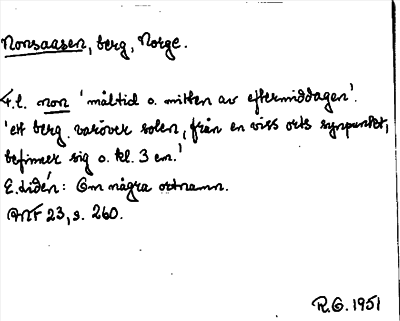 Nonsaasen, berg, Norge.
F.l. non 'måltid o. mitten av eftermiddagen'.
'ett berg varöver solen, från en viss orts synpunkt,
befinner sig o. kl. 3 em.'
E. Lidén: Om några ortnamn.
ANF 23, s. 260.
R.G. 1951